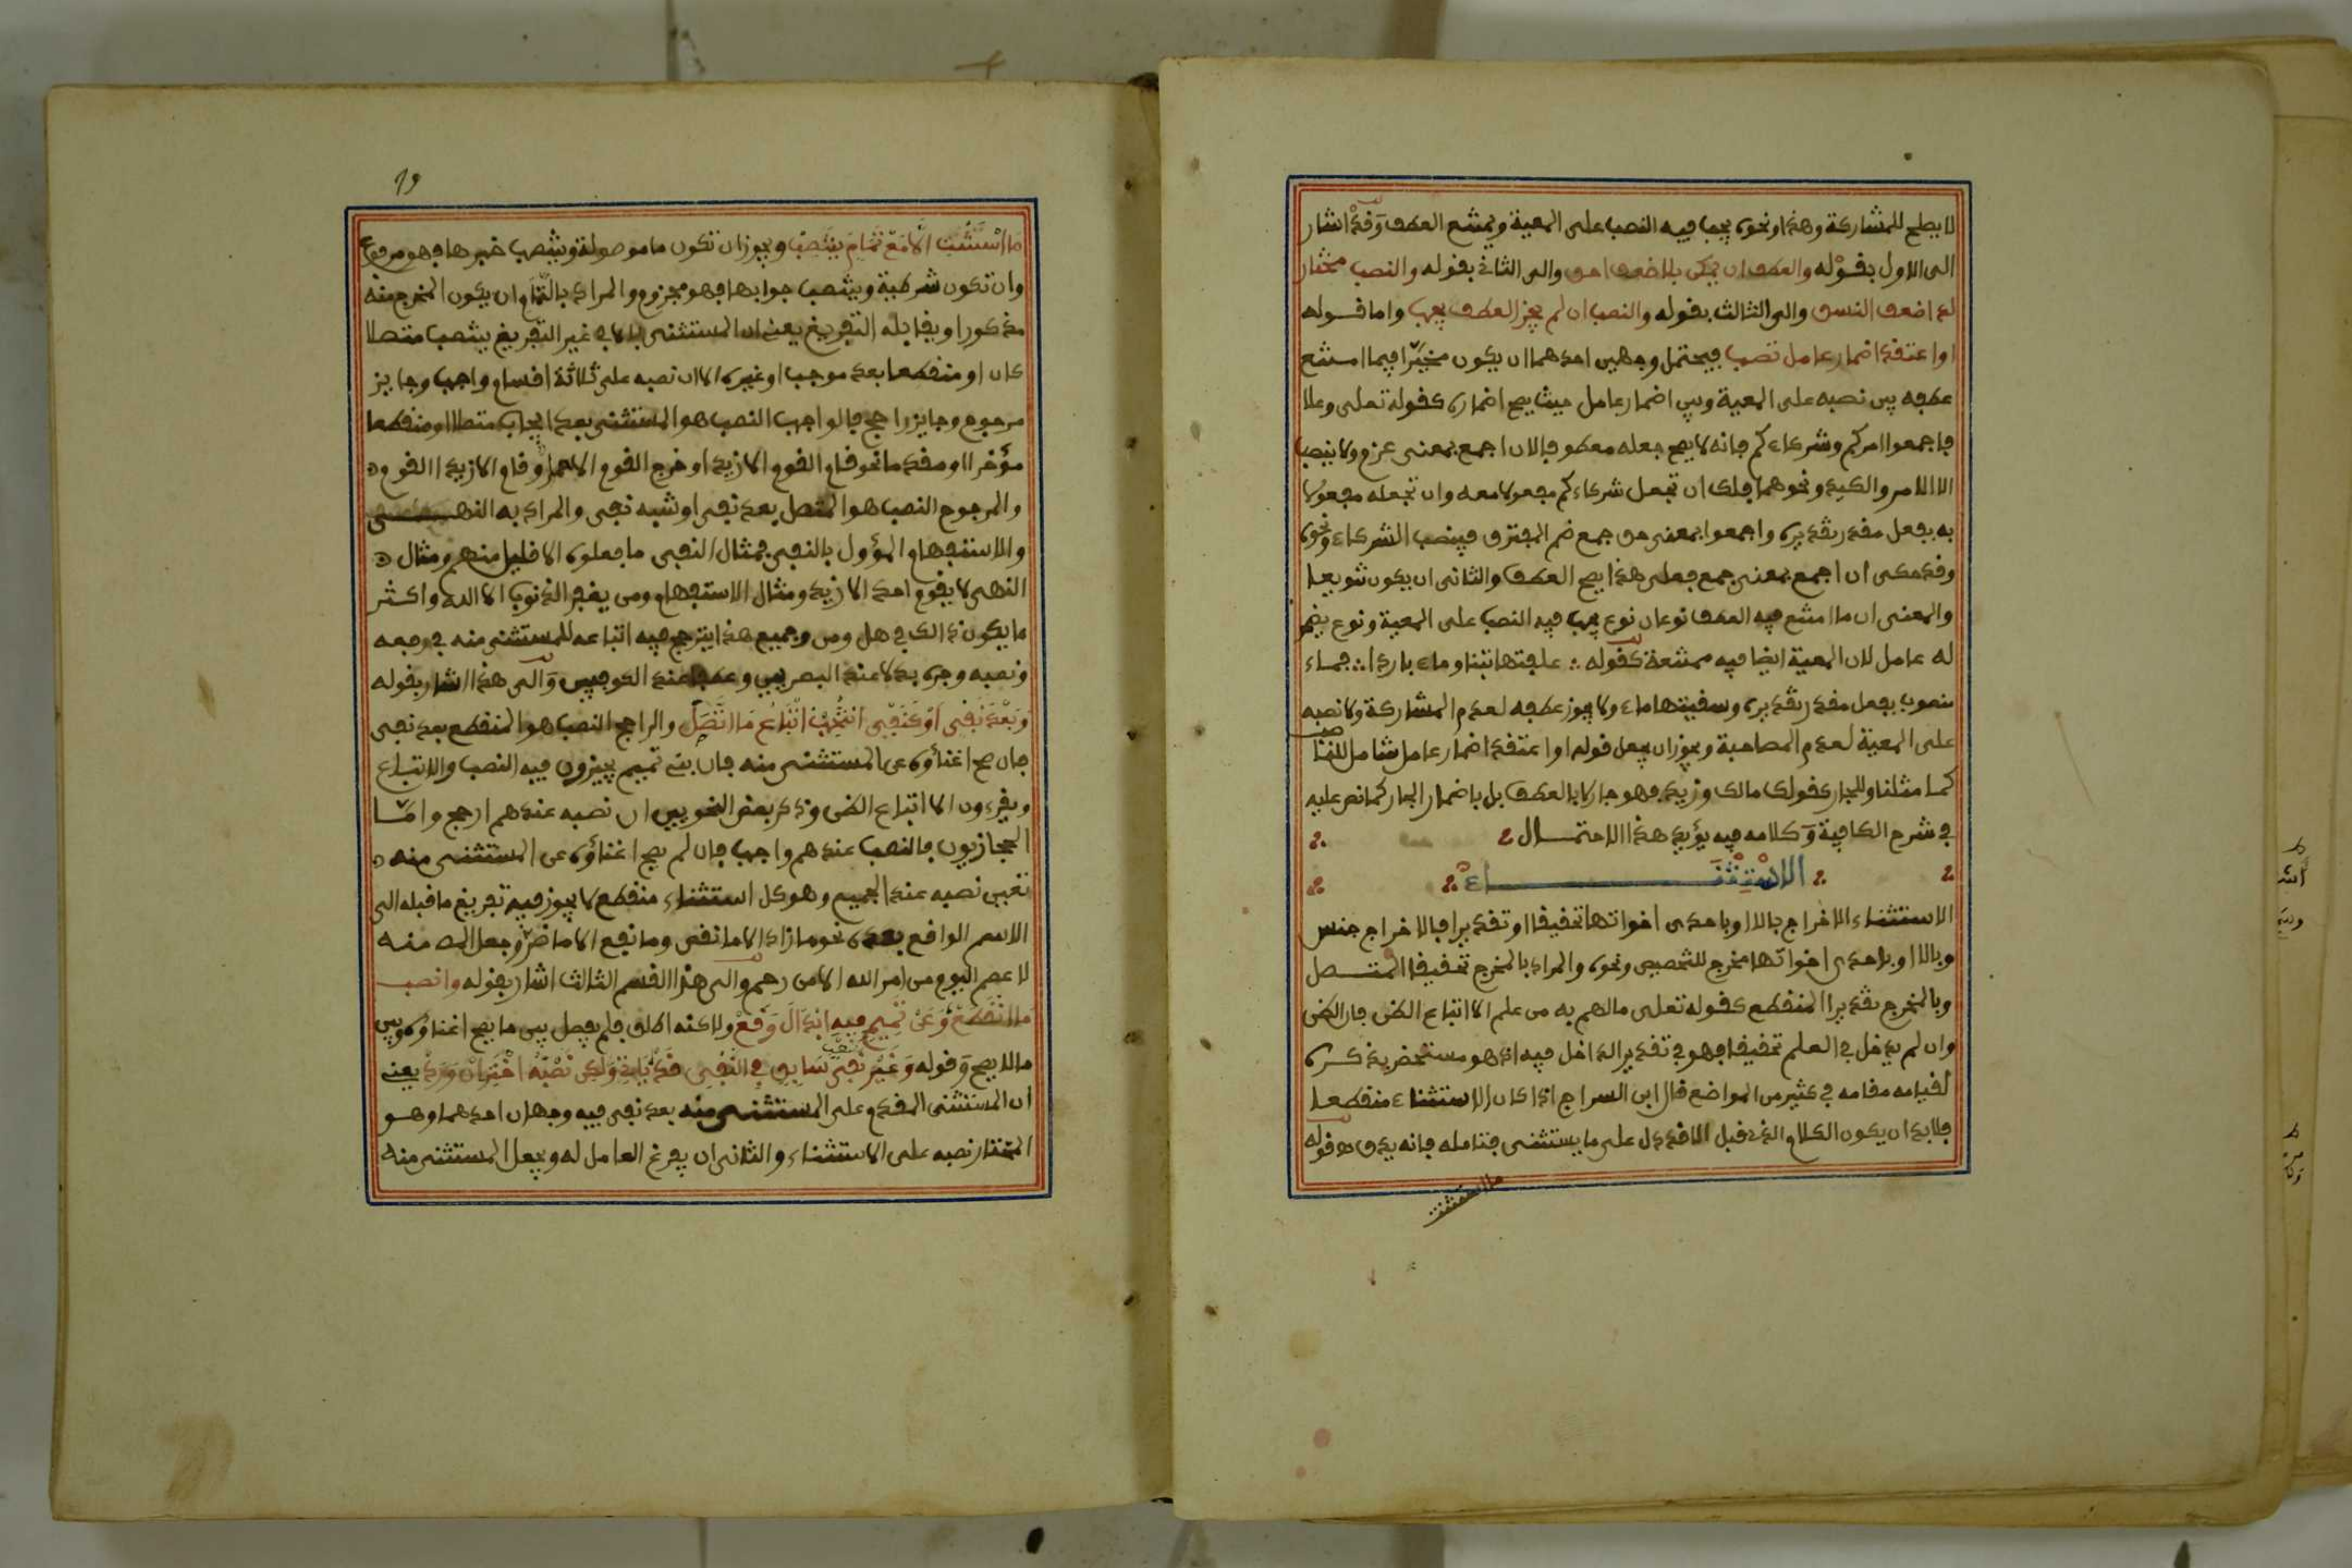 لا يصلح للمشاركة وهذا ونحوه يجب فيه النصب على المعية ويمتنع العطف وقد اشار
الى الاول بقوله والعطف ان يمكن بلا ضعف احق والى الثاني بقوله والنصب مختار
لدى ضعف النسق والى الثالث بقوله والنصب ان لم يجز العطف يجب واما قوله
او اعتقد اضمار عامل تصب فيحتمل وجهين احدهما ان يكون مخيرا فيما امتنع
عطفه بين نصبه على المعية وبين اضمار عامل حيث يصح اضماره كقوله تعلى وعلا
فاجمعوا امركم وشركاءكم فانه لا يصح جعله معطوفا لان اجمع بمعنى عزم ولا ينصب
الا الامر والكيد ونحوهما فلك ان تجعل شركاءكم مفعولا معه وان تجعله مفعولا
به بفعل مقدر تقديره واجمعوا بمعنى من جمع ضم المفترق فينصب الشركاء ونحوه
وقد حكى ان اجمع بمعنى جمع فعلى هذا يصح العطف والثاني ان يكون تنويعا
والمعنى ان ما امتنع فيه العطف نوعان نوع يجب فيه النصب على المعية ونوع يضمر
له عامل لان المعية ايضا فيه ممتنعة كقوله ∴ علفتها تبنا وماء باردا ∴ فماء
منصوب بفعل مقدر تقديره وسقيتها ماء ولا يجوز عطفه لعدم المشاركة ولا نصبه
على المعية لعدم المصاحبة ويجوز ان يجعل قوله او اعتقد اضمار عامل شامل للناصب
كما مثلنا وللجار كقولك مالك وزيد فهو جار لا بالعطف بل باضمار الجار كما نص عليه
في شرح الكافية وكلامه فيه يؤيد هذا الاحتمال
الاستثناء
الاستثناء الاخراج بالا او باحدى اخواتها تحقيقا او تقديرا فالاخراج جنس
وبالا او باحدى اخواتها مخرج للتخصيص ونحوه والمراد بالمخرج تحقيقا المتصل
وبالمخرج تقديرا المنقطع كقوله تعلى مالهم به من علم الا اتباع الظن فان الظن
وان لم يدخل في العلم تحقيقا فهو في تقدير الداخل فيه اذ هو مستحضر بذكره
لقيامه مقامه في كثير من المواضع قال ابن السراج اذا كان الاستثناء منقطعا
فلا بد ان يكون الكلام الذي قبل الا قد دل على ما يستثنى فتامله فانه يدق قوله
ما استثنت
19
ما استثنت الا مع تمام ينتصب ويجوز ان تكون ما موصولة وينتصب خبرها فهو مرفوع
وان تكون شرطية وينتصب جوابها فهو مجزوم والمراد بالتمام ان يكون المخرج منه
مذكورا ويقابله التفريغ يعني ان المستثنى بالا في غير التفريغ ينتصب متصلا
كان او منقطعا بعد موجب او غيره الا ان نصبه على ثلاثة اقسام واجب وجايز
مرجوح وجايز راجح فالواجب النصب هو المستثنى بعد ايجاب متصلا او منقطعا
مؤخرا او مقدما نحو قام القوم الا زيدا وخرج القوم الا حمارا وقام الا زيدا القوم
والمرجوح النصب هو المتصل بعد نفي او شبه نفي والمراد به النهي
والاستفهام المؤول بالنفي فمثال النفي ما فعلوه الا قليل منهم ومثال
النهي لا يقم احد الا زيد ومثال الاستفهام ومن يغفر الذنوب الا الله واكثر
ما يكون ذالك في هل ومن وجميع هذا يترجح فيه اتباعه للمستثنى منه في رفعه
ونصبه وجره بدلا عند البصريين وعطفا عند الكوفيين والى هذا اشار بقوله
وبعد نفي او كنفي انتخب اتباع ما اتصل والراجح النصب هو المنقطع بعد نفي
فان صح اغناؤه عن المستثنى منه فان بني تميم يجيزون فيه النصب والاتباع
ويقرءون الا اتباع الظن وذكر بعض النحويين ان نصبه عندهم ارجح واما
الحجازيون فالنصب عندهم واجب فان لم يصح اغناؤه عن المستثنى منه
تعين نصبه عند الجميع وهو كل استثناء منقطع لا يجوز فيه تفريغ ما قبله الى
الاسم الواقع بعده نحو ما زاد الا ما نقص وما نفع الا ما ضر وجعل منه
لا عصم اليوم من امر الله الا من رحم والى هذا القسم الثالث اشار بقوله وانصب
ما انقطع وعن تميم فيه ابدال وقع ولاكنه اطلق فلم يفصل بين ما يصح اغناؤه وبين
ما لا يصح وقوله وغير نصب سابق في النفي قد ياتي ولكن نصبه اختر ان ورد يعني
ان المستثنى المقدم على المستثنى منه بعد نفي فيه وجهان احدهما وهو
المختار نصبه على الاستثناء والثاني ان يفرغ العامل له ويجعل المستثنى منه